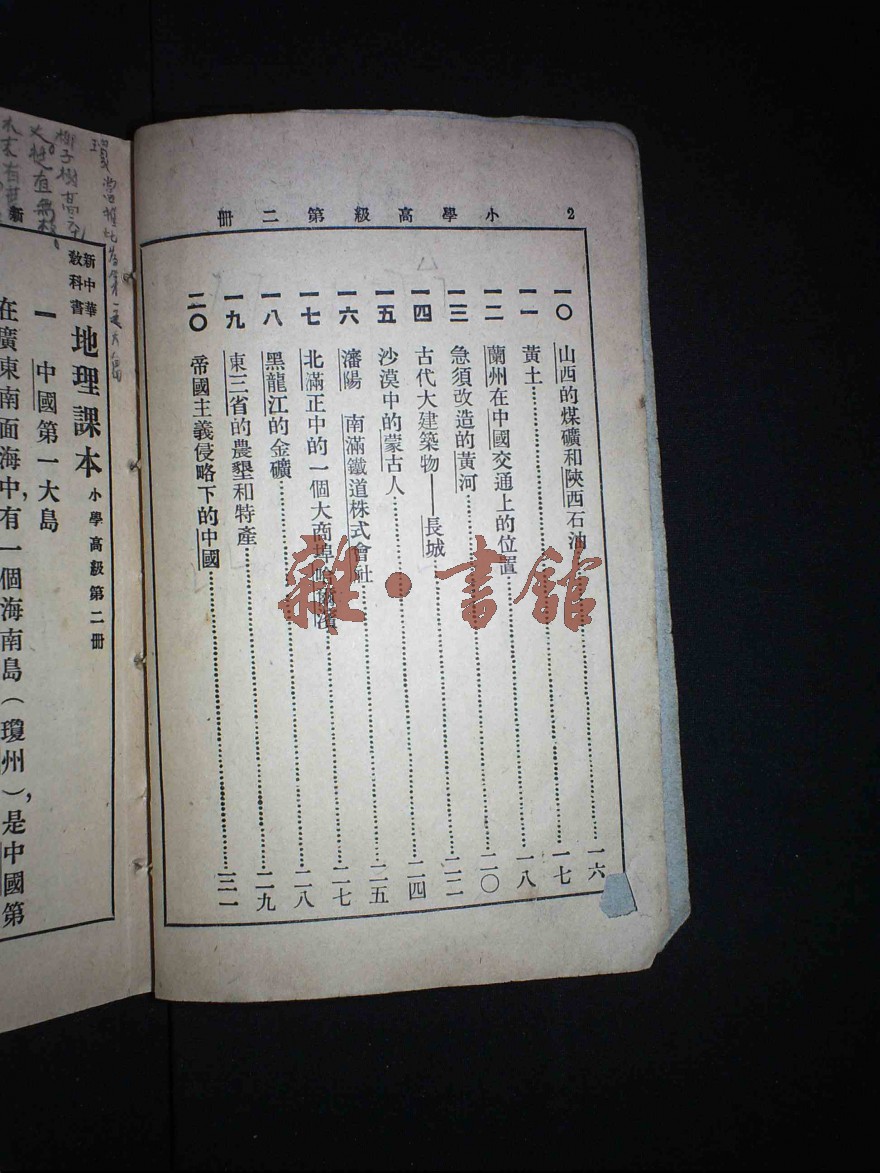 2 小學高級第二冊
一〇 山西的煤礦和陝西石油……一六
一一 黃土……一七
一二 蘭州在中國交通上的位置……一八
一三 急須改造的黃河……二〇
一四 古代大建築物——長城……二二
一五 沙漠中的蒙古人……二四
一六 瀋陽 南滿鐵道株式會社……二五
一七 北滿正中的一個大商埠哈爾濱……二七
一八 黑龍江的金礦……二八
一九 東三省的農墾和特產……二九
二〇 帝國主義侵略下的中國……三一
新中華教科書 地理課本 小學高級第二冊
一 中國第一大島
在廣東南面海中，有一個海南島（瓊州），是中國第
新
椰子樹高
雜·書館